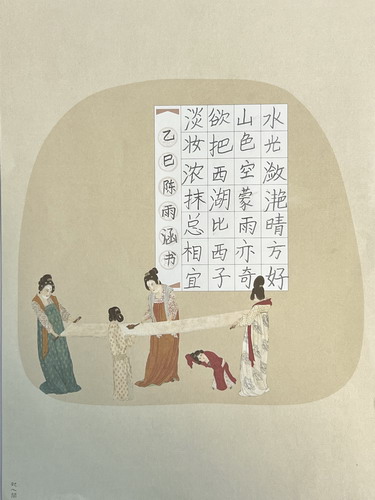 水光潋滟晴方好
山色空蒙雨亦奇
欲把西湖比西子
淡妆浓抹总相宜
乙巳陈雨涵书